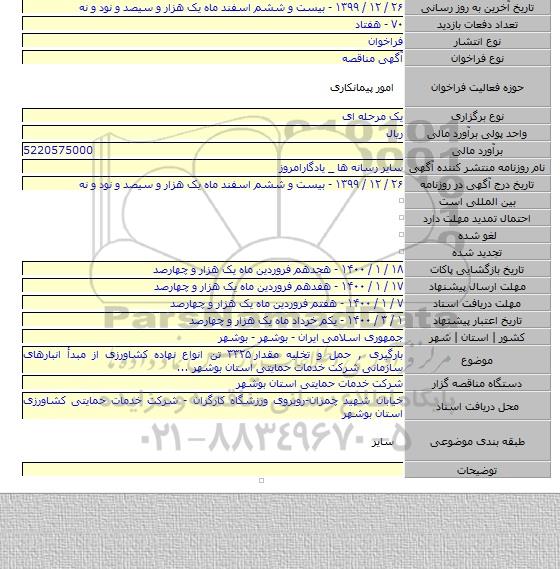 تاریخ آخرین به روز رسانی ۲۶ / ۱۲ / ۱۳۹۹ - بیست و ششم اسفند ماه یک هزار و سیصد و نود و نه
تعداد دفعات بازدید ۷۰ - هفتاد
نوع انتشار فراخوان
نوع فراخوان آگهی مناقصه
حوزه فعالیت فراخوان امور پیمانکاری
نوع برگزاری یک مرحله ای
واحد پولی برآورد مالی ریال
برآورد مالی 5220575000
نام روزنامه منتشر کننده آگهی سایر رسانه ها _ یادگارامروز
تاریخ درج آگهی در روزنامه ۲۶ / ۱۲ / ۱۳۹۹ - بیست و ششم اسفند ماه یک هزار و سیصد و نود و نه
بین المللی است
احتمال تمدید مهلت دارد
لغو شده
تجدید شده
تاریخ بازگشایی پاکات ۱۸ / ۱ / ۱۴۰۰ - هجدهم فروردین ماه یک هزار و چهارصد
مهلت ارسال پیشنهاد ۱۷ / ۱ / ۱۴۰۰ - هفدهم فروردین ماه یک هزار و چهارصد
مهلت دریافت اسناد ۷ / ۱ / ۱۴۰۰ - هفتم فروردین ماه یک هزار و چهارصد
تاریخ اعتبار پیشنهاد ۱ / ۳ / ۱۴۰۰ - یکم خرداد ماه یک هزار و چهارصد
کشور | استان | شهر جمهوری اسلامی ایران - بوشهر - بوشهر
موضوع بارگیری , حمل و تخلیه مقدار۳۳۲۵ تن انواع نهاده کشاورزی از مبدأ انبارهای
سازمانی شرکت خدمات حمایتی استان بوشهر ...
دستگاه مناقصه گزار شرکت خدمات حمایتی استان بوشهر
محل دریافت اسناد خیابان شهید چمران-روبروی ورزشگاه کارگران - شرکت خدمات حمایتی کشاورزی
استان بوشهر
طبقه بندی موضوعی سایر
توضیحات
۰۲۱-۸۸۳۴۹۶۷۰-۵